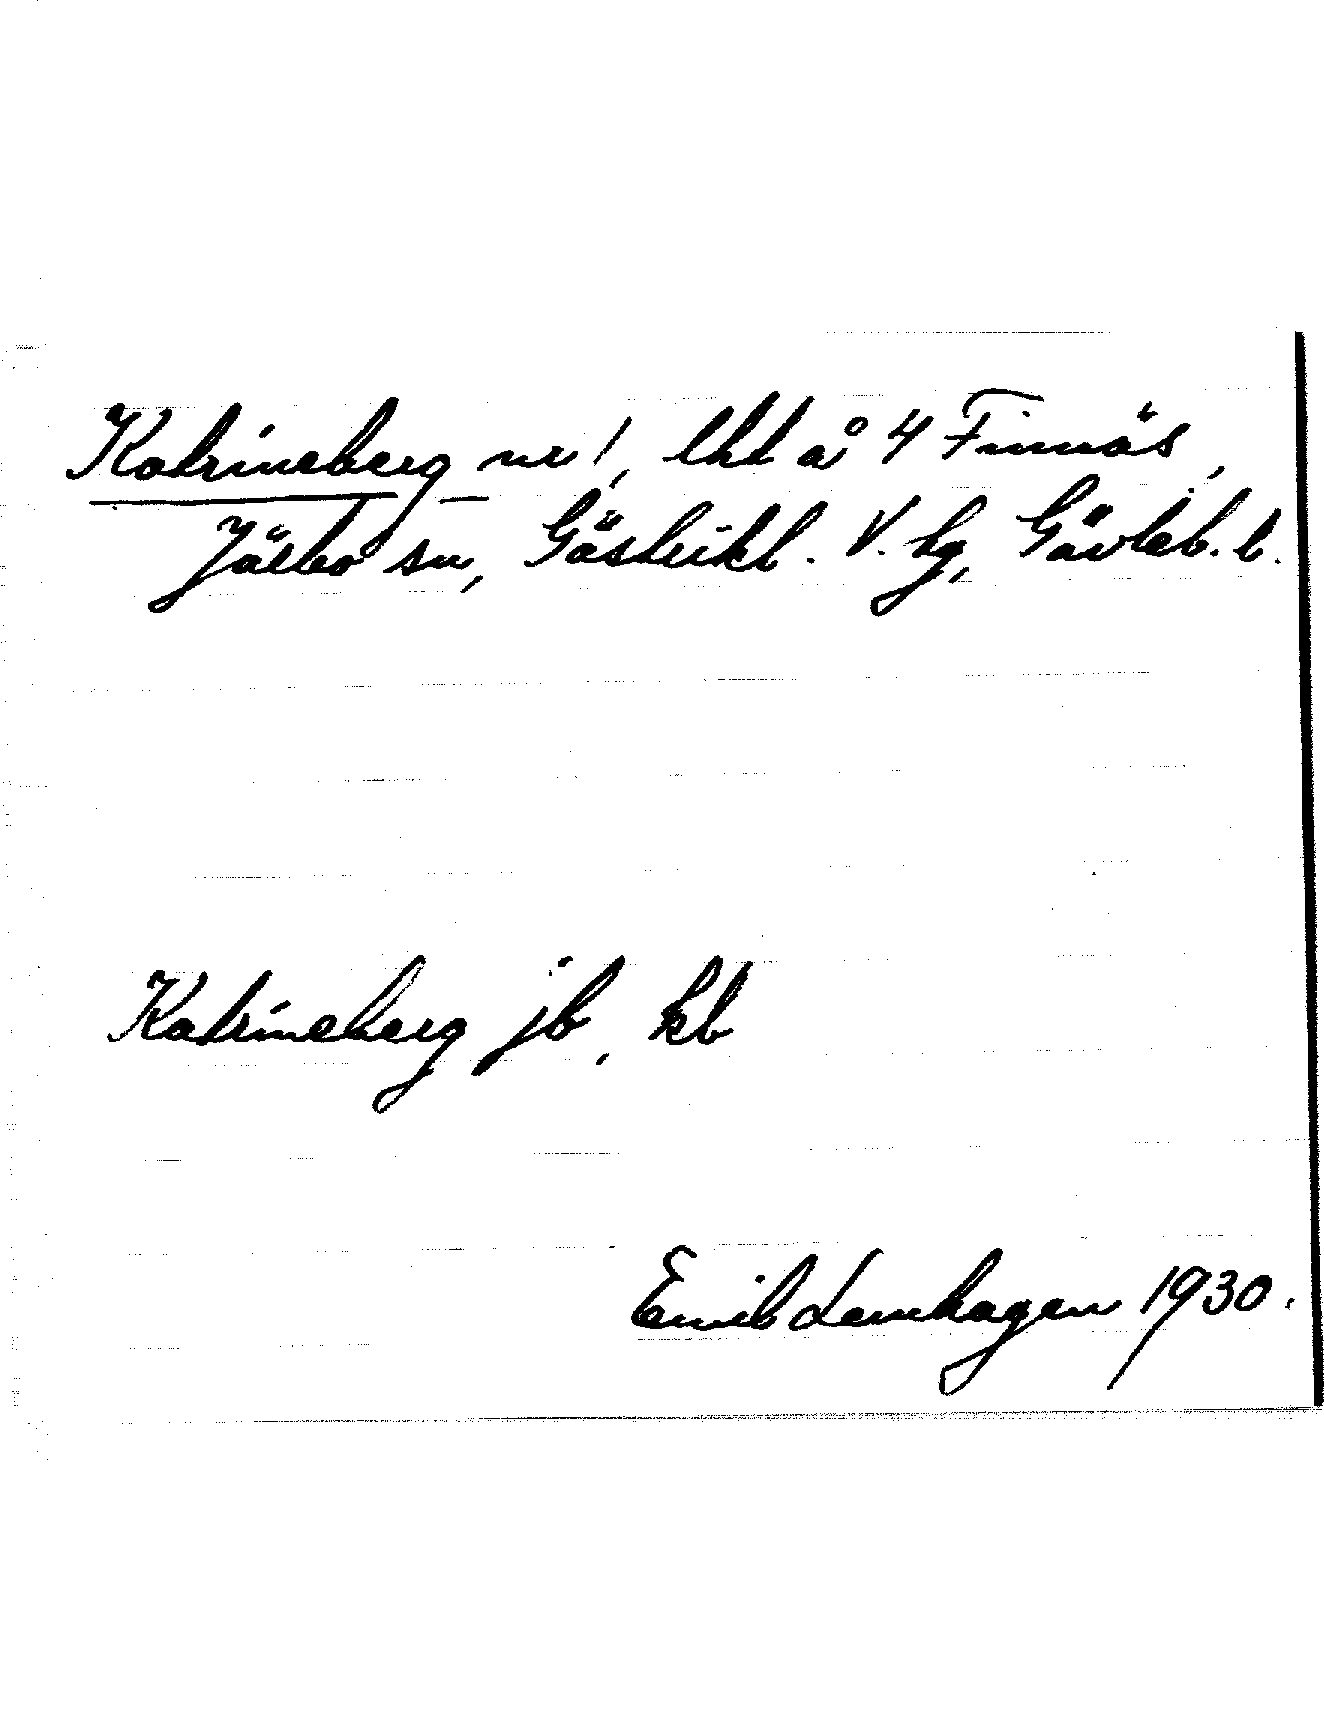 Katrineberg nr 1, lht å 4 Finnäs,
Järbo sn, Gästrikl. V. tg, Gävleb. l.
Katrineberg jb, kb
Emil Lennhagen 1930.